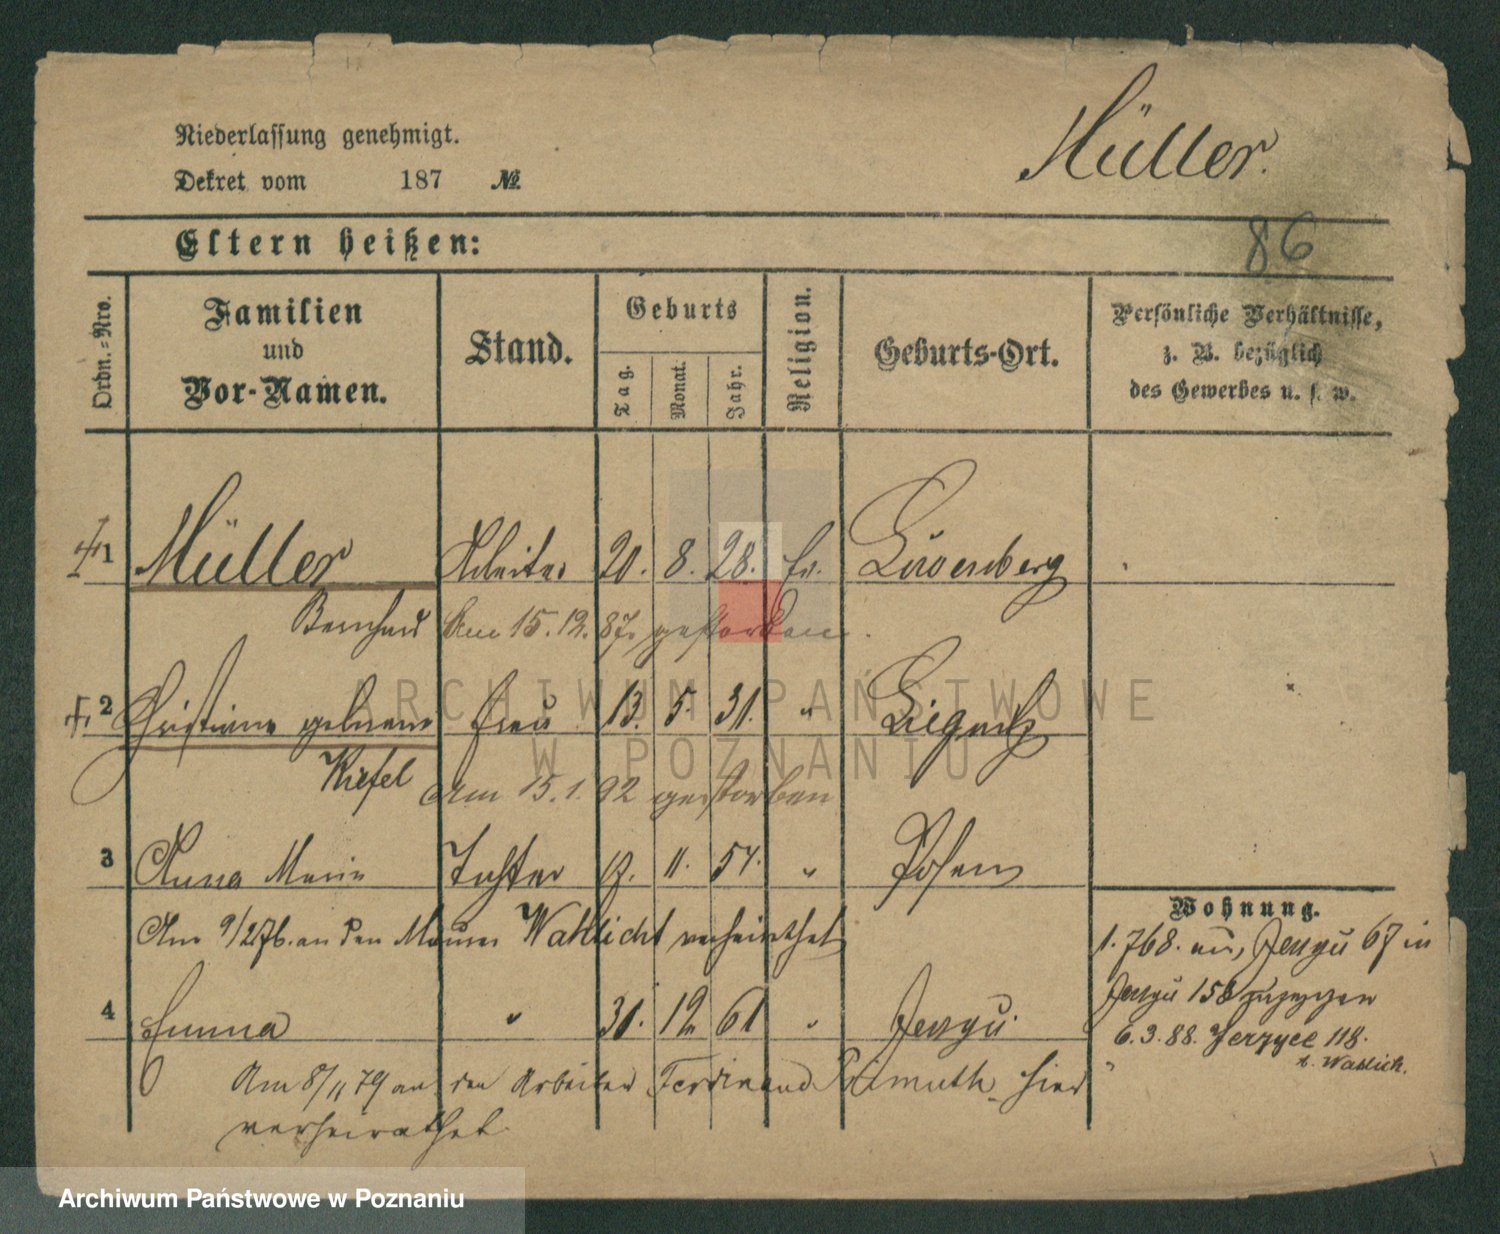 Müller.
Niederlassung genehmigt.
Dekret vom 187 №
86
Eltern heißen:
Ordn.-Nro.
Familien
und
Vor-Namen.
Stand.
Geburts
Tag.
Monat.
Jahr.
Religion.
Geburts-Ort.
Persönliche Verhältnisse,
z. B. bezüglich
des Gewerbes u. s. w.
1 Müller Arbeiter 20. 8. 28. Ev. Löwenberg
Bernhard Am 15. 12. 87. gestorben.
2 Christiane geborene Frau 13. 5. 31. " Liegnitz
Kiefel Am 15. 1. 92 gestorben
3 Anna Marie Tochter 11. 57. " Posen
Am 9/2 76. an den Maurer Wahlicht verheirathet
Wohnung.
1. 768. Jerzyce 67 in
Jerzyce 158 zugezogen
4 Emma " 31. 12 61 " Jerzyce
6. 3. 88. Jerzyce 118.
b. Wahlich.
Am 8/11 79 an den Arbeiter Ferdinand hier
verheirathet.
ARCHIWUM PAŃSTWOWE
W POZNANIU
Archiwum Państwowe w Poznaniu